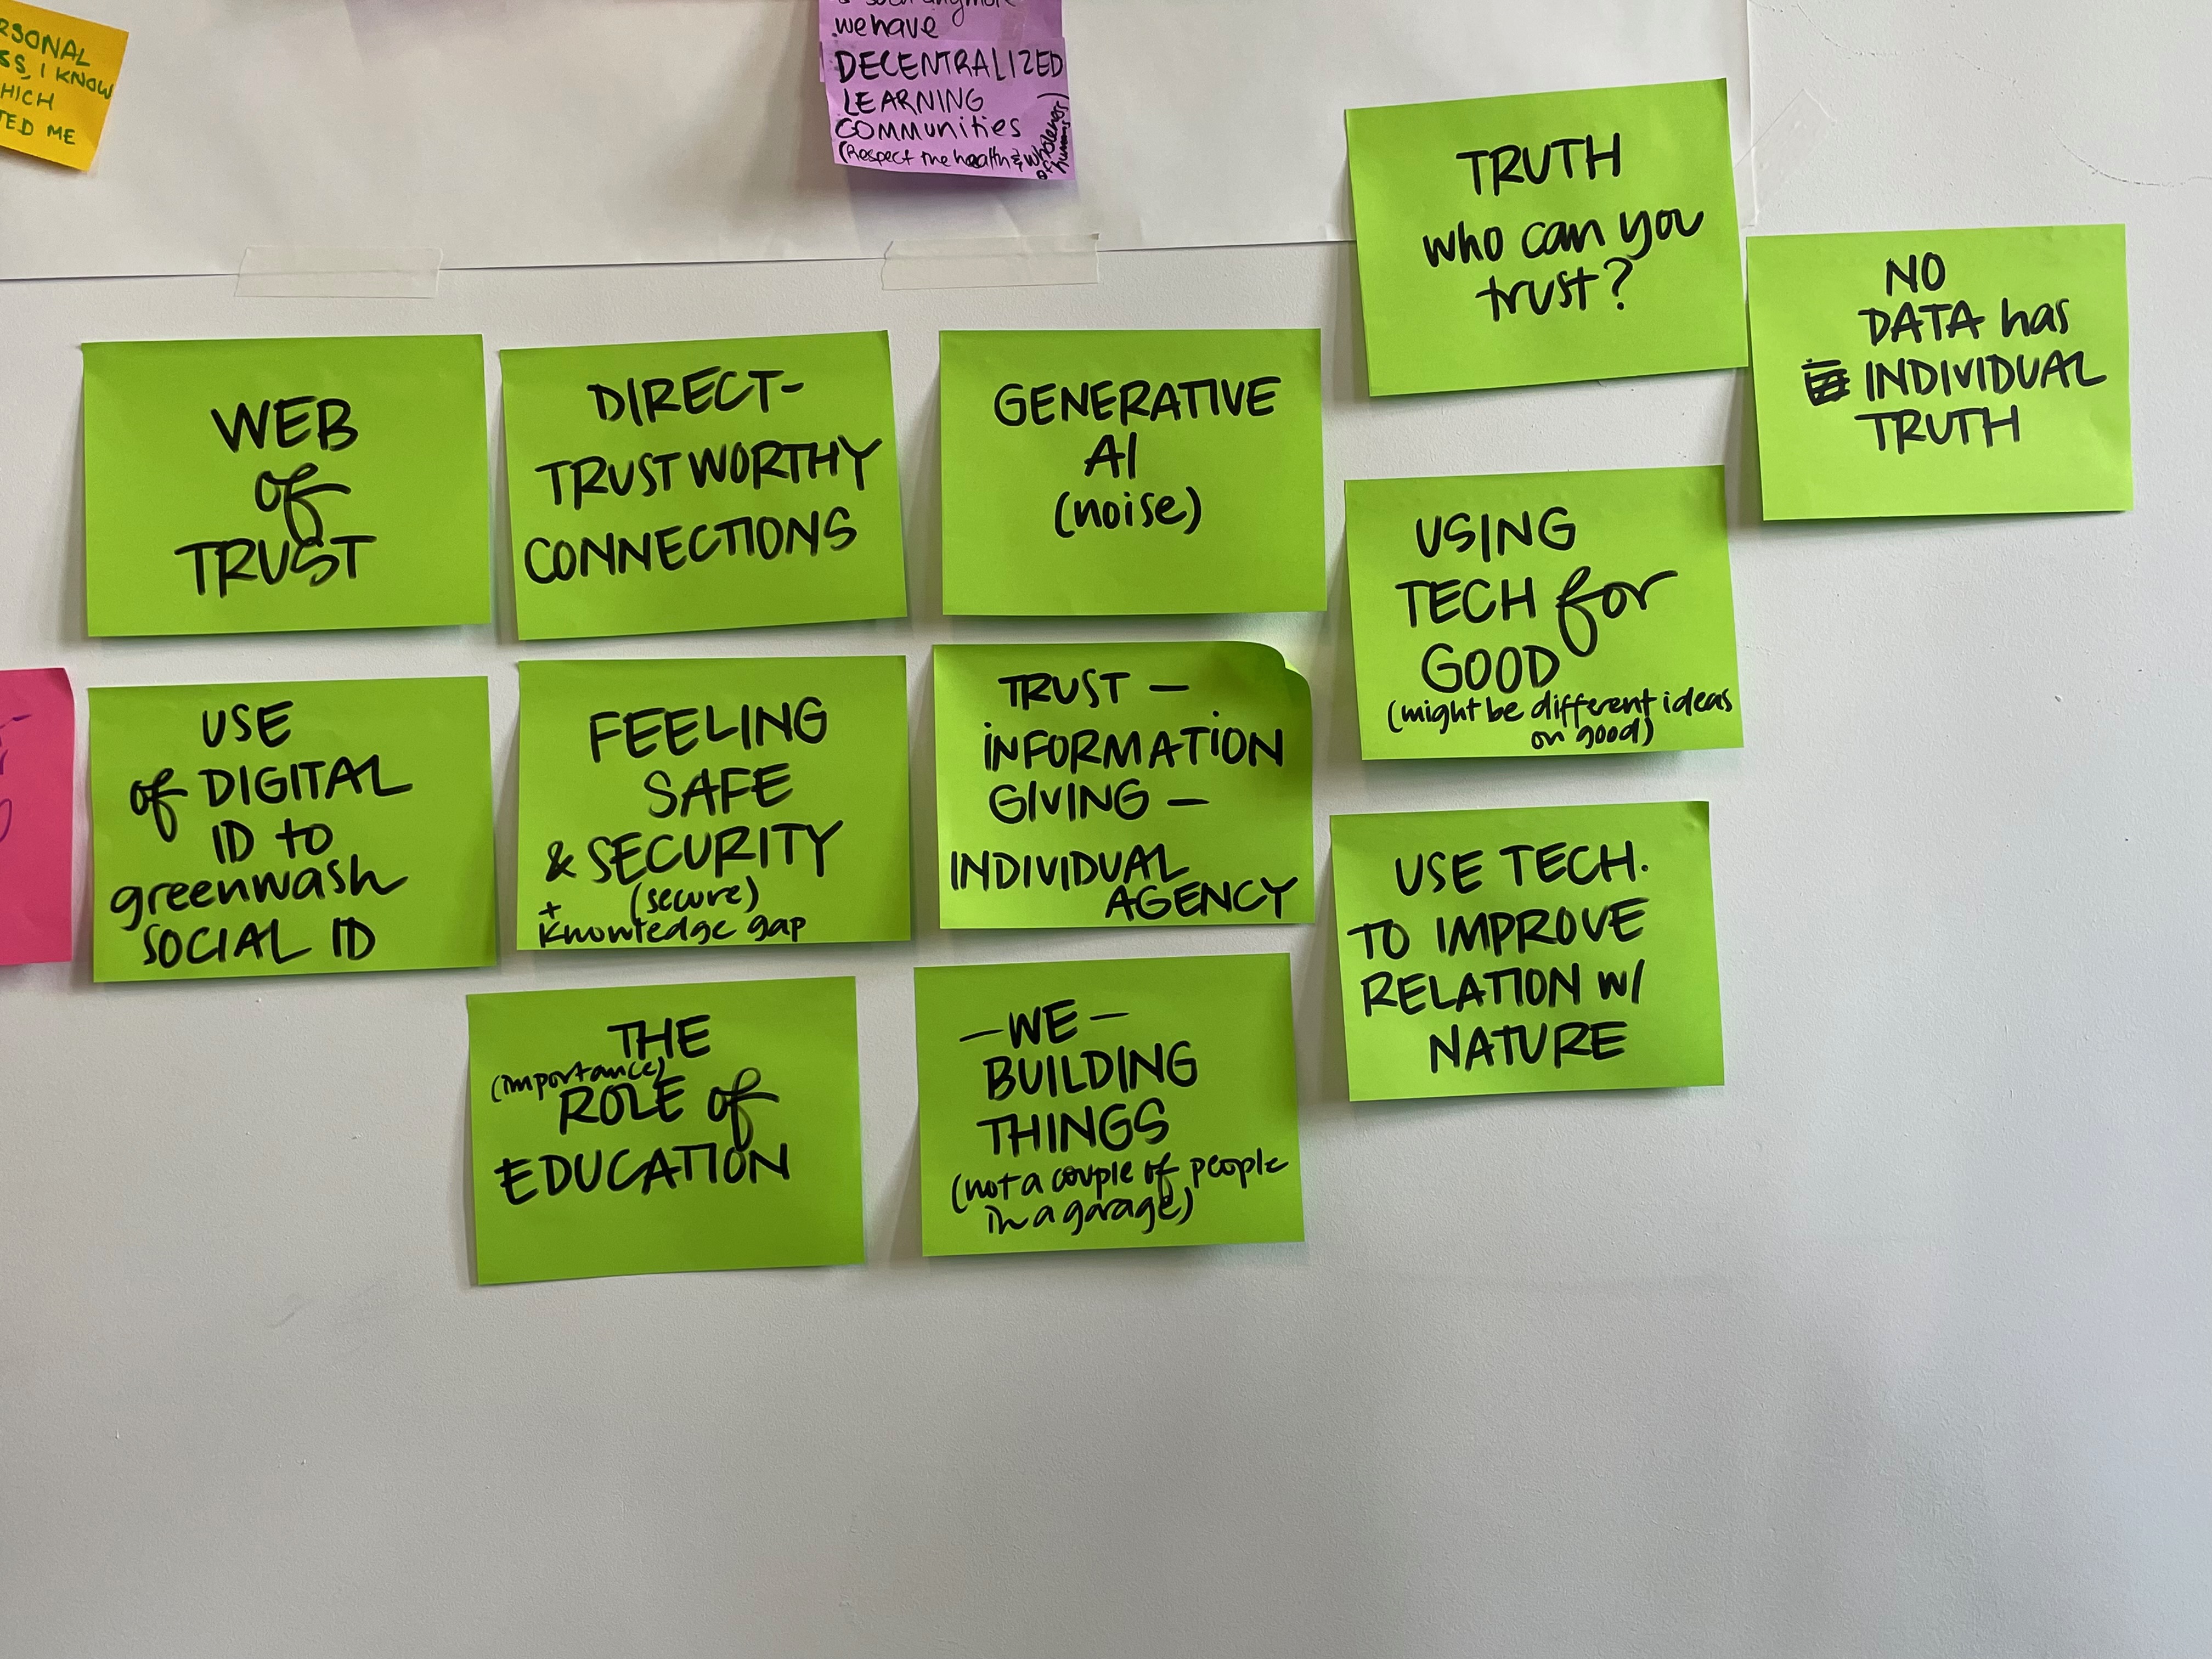 RSONAL
SS, I KNOW
HICH
TED ME
we have
DECENTRALIZED
LEARNING
COMMUNITIES
(Respect the health & wholeness
of humans)
TRUTH
who can you
trust?
NO
DATA has
INDIVIDUAL
TRUTH
WEB
of
TRUST
DIRECT-
TRUSTWORTHY
CONNECTIONS
GENERATIVE
AI
(noise)
USING
TECH for
GOOD
(might be different ideas
on good)
USE
of DIGITAL
ID to
greenwash
SOCIAL ID
FEELING
SAFE
& SECURITY
(secure)
+
knowledge gap
TRUST —
INFORMATION
GIVING —
INDIVIDUAL
AGENCY
USE TECH.
TO IMPROVE
RELATION W/
NATURE
THE
(importance)
ROLE of
EDUCATION
— WE —
BUILDING
THINGS
(not a couple of people
in a garage)